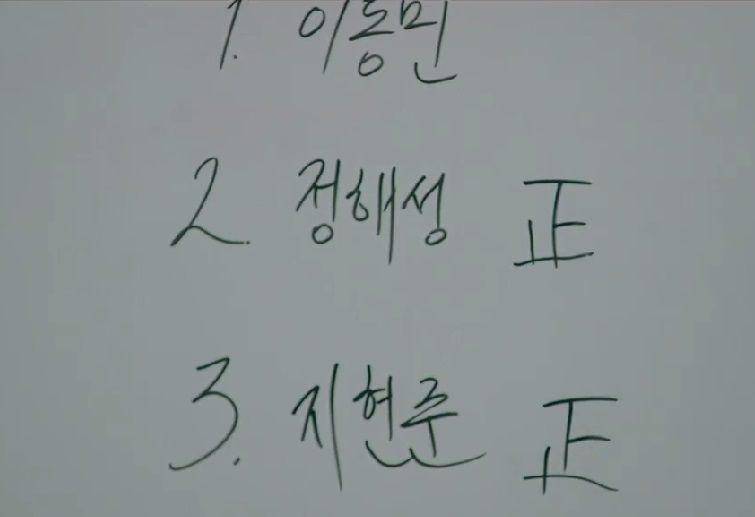 1. 이동민
2. 정해성 正
3. 지현준 正